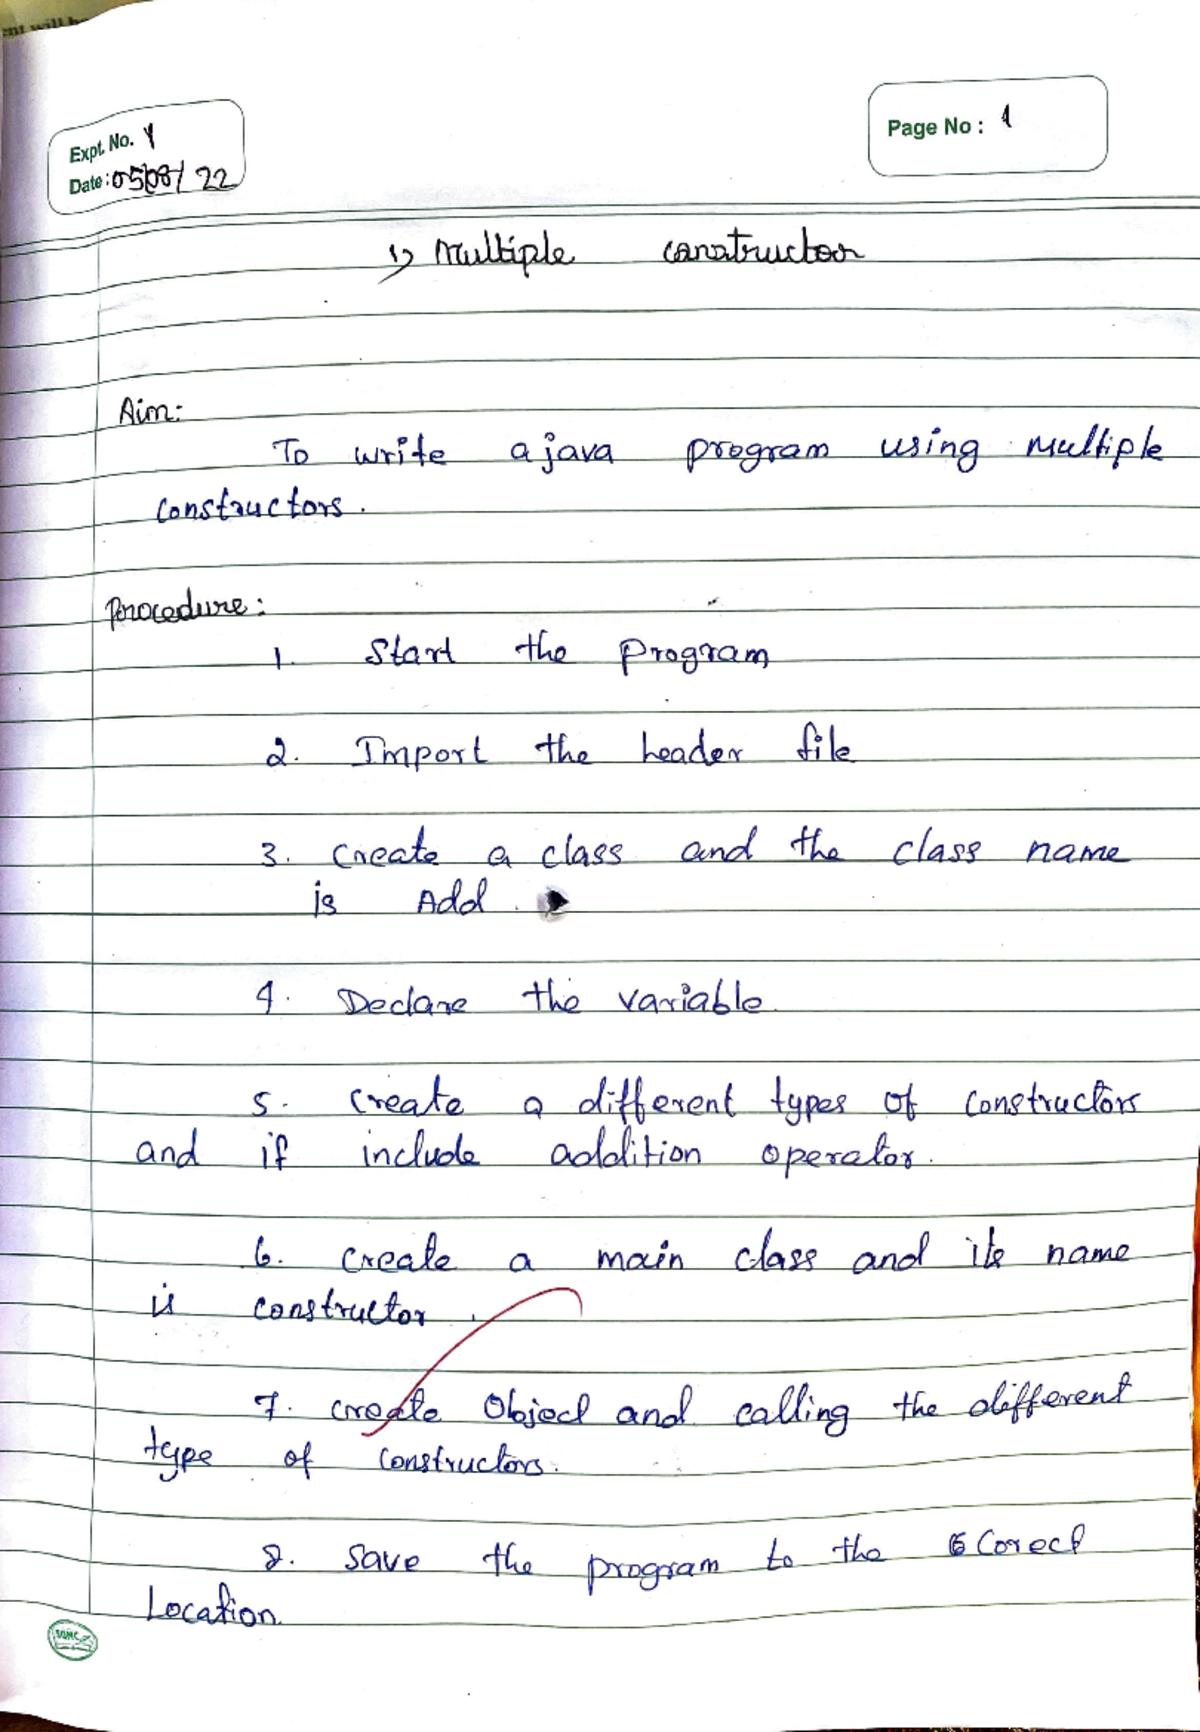 Expt. No. 1
Date: 05/08/22
Page No: 1
1) Multiple constructor
Aim:
To write a java program using multiple
constructors.
Procedure:
1. Start the program
2. Import the header file
3. Create a class and the class name
is Add.
4. Declare the variable
5. Create a different types of constructors
and if include addition operator.
6. Create a main class and its name
is constructor.
7. Create Object and calling the different
type of constructors.
8. Save the program to the Corect
Location.